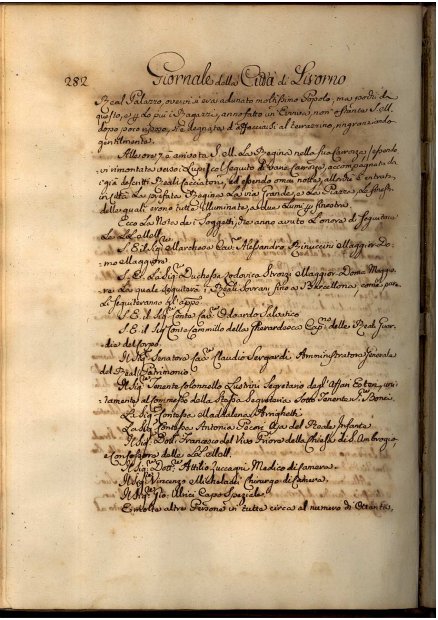 282
Giornale della Città di Livorno
Real Palazzo, ove vi si era adunato moltissimo Popolo; ma perchè da
questo, e per lo più i Ragazzi, anno fatto un non ostante S. M.
dopo poco riposo, si è degnata d'affacciarsi al terrazzino, ringraziando
gentilmente.
Alle ore 7 è arrivata S. M. La Regina nella sua Carrozza essendo
rimontata con Seguito di varie Carrozze, accompagnata da
già descritti Reali Cacciatori, ed essendo omai notte, allorchè è entrata
in Città La prefata Regina La via Grande, e La Piazza, Le finestre
delle quali erono tutte illuminate, a due Lumi per finestra
Ecco La Nota dei Soggetti, che anno avuto L'onore di seguitare
Le LL. MM.
S. E. il Sig. Marchese Alessandro Rinuccini Maggior-Do-
mo Maggiore
S. E. La Sig. Duchessa Lodovica Strozzi Maggior-Doma Maggio-
re La quale seguiterà i Reali Sovrani fino a Barcellona, come pure
Li seguiteranno gl'appo
S. E. il Sig. Conte Cav. Odoardo Salvatico
S. E. il Sig. Conte Cammillo della Gherardesca Cap.no delle Real Guar-
die del Corpo.
Il Sig. Senatore Cav. Claudio Sergardi Amministratore Generale
del Real Patrimonio
Il Sig. Tenente Colonnello Lustrini Segretario degl'Affari Esteri, uni-
tamente al commesso della Stessa Segreteria Sotto Tenente Boni
La Sig. Contessa Maddalena Arrighetti
La Sig. Contessa Antonia Pecori Aja del Reale Infante
Il Sig. Dott. Francesco del Vivo Priore della Chiesa di S. Ambrogio,
e Confessore delle LL. MM.
Il Sig. Dott. Attilio Zuccagni Medico di Camera.
Il Sig. Vincenzo Michelacci Chirurgo di Camera.
Il Sig. Gio. Ulrici Capo Speziale.
E molte altre Persone in tutte circa al numero di Ottanta.